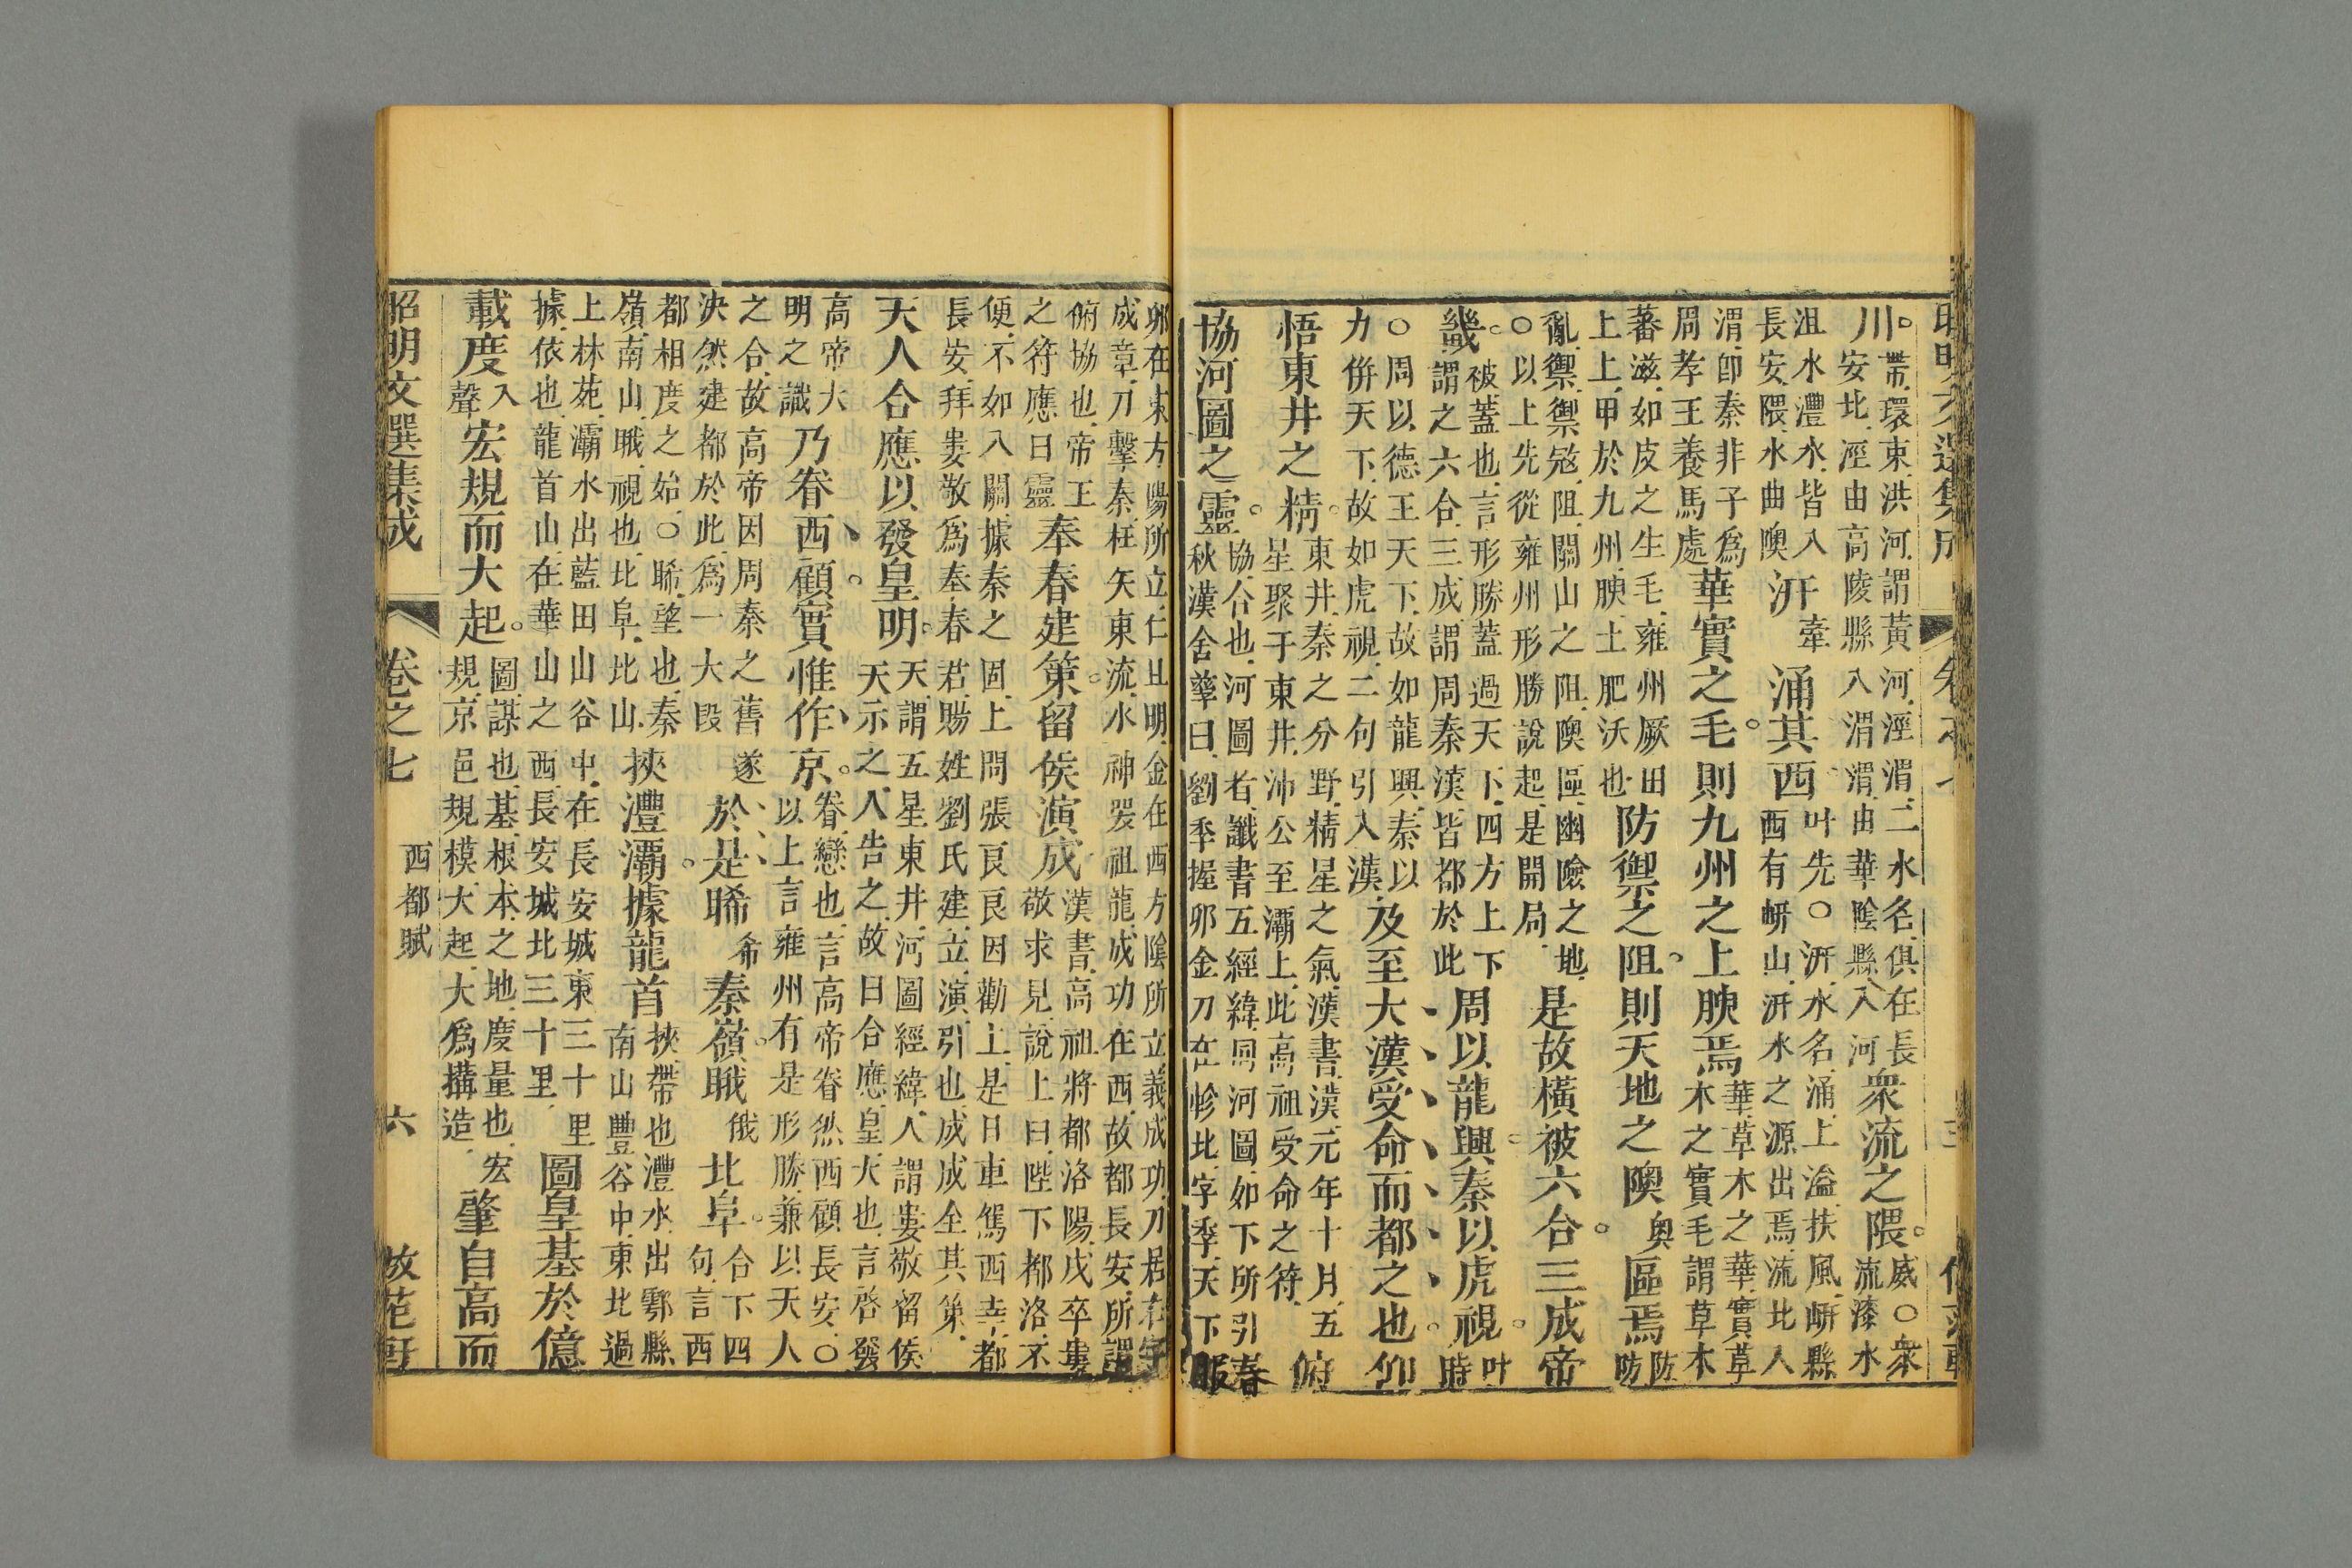 川。帶環東洪河謂黃河涇渭二水名俱在長安北涇由高陵縣入渭渭由華陰縣入河眾流之隈。威〇眾流漆水
沮水灃水皆入長安隈水曲隩汧牽涌其西叶先〇汧水名涌上溢扶風岍縣西有岍山汧水之源出焉流北入
渭卽秦非子爲周孝王養馬處華實之毛。則九州之上腴焉華草木之華實草木之實毛謂草木
蕃滋如皮之生毛雍州厥田上上甲於九州腴土肥沃也防禦之阻。則天地之隩奧區焉防防
亂禦禦冦阻關山之阻隩區幽險之地〇以上先從雍州形勝說起是開局是故橫被六合。三成帝
畿。被蓋也言形勝蓋過天下四方上下謂之六合三成謂周秦漢皆都於此周以龍興。秦以虎視。叶時
〇周以德王天下故如龍興秦以力併天下故如虎視二句引入漢及至大漢受命而都之也。仰
悟東井之精。東井秦之分野精星之氣漢書漢元年十月五星聚于東井沛公至灞上此高祖受命之符俯
協河圖之靈。協合也河圖者讖書五經緯同河圖如下所引春秋漢含孳曰劉季握卯金刀在軫北字季天下服
卯在東方陽所立仁且明金在西方陰所立義成功刀居右字成章刀擊秦枉矢東流水神哭祖龍成功在西故都長安所謂
俯協也帝王之符應曰靈奉春建策。留侯演成漢書高祖將都洛陽戍卒婁敬求見說上曰陛下都洛不
便不如入關據秦之固上問張良良因勸上是日車駕西幸都長安拜婁敬爲奉春君賜姓劉氏建立演引也成成全其策
天人合應以發皇明。天謂五星東井河圖經緯人謂婁敬留侯天示之人告之故曰合應皇大也言啓發
高帝大明之識乃眷西顧。實惟作京。眷戀也言高帝眷然西顧長安〇以上言雍州有是形勝兼以天人
之合故高帝因周秦之舊遂決然建都於此爲一大段於是睎希秦嶺。睋俄北阜。合下四句言西
都相度之始〇睎望也秦嶺南山睋視也北阜北山挾灃灞。據龍首挾帶也灃水出鄠縣南山豐谷中東北過
上林苑灞水出藍田山谷中在長安城東三十里據依也龍首山在華山之西長安城北三十里圖皇基於億
載度入聲宏規而大起。圖謀也基根本之地度量也宏規京邑規模大起大爲搆造肇自高而
昭明文選集成 卷之七 西都賦 六